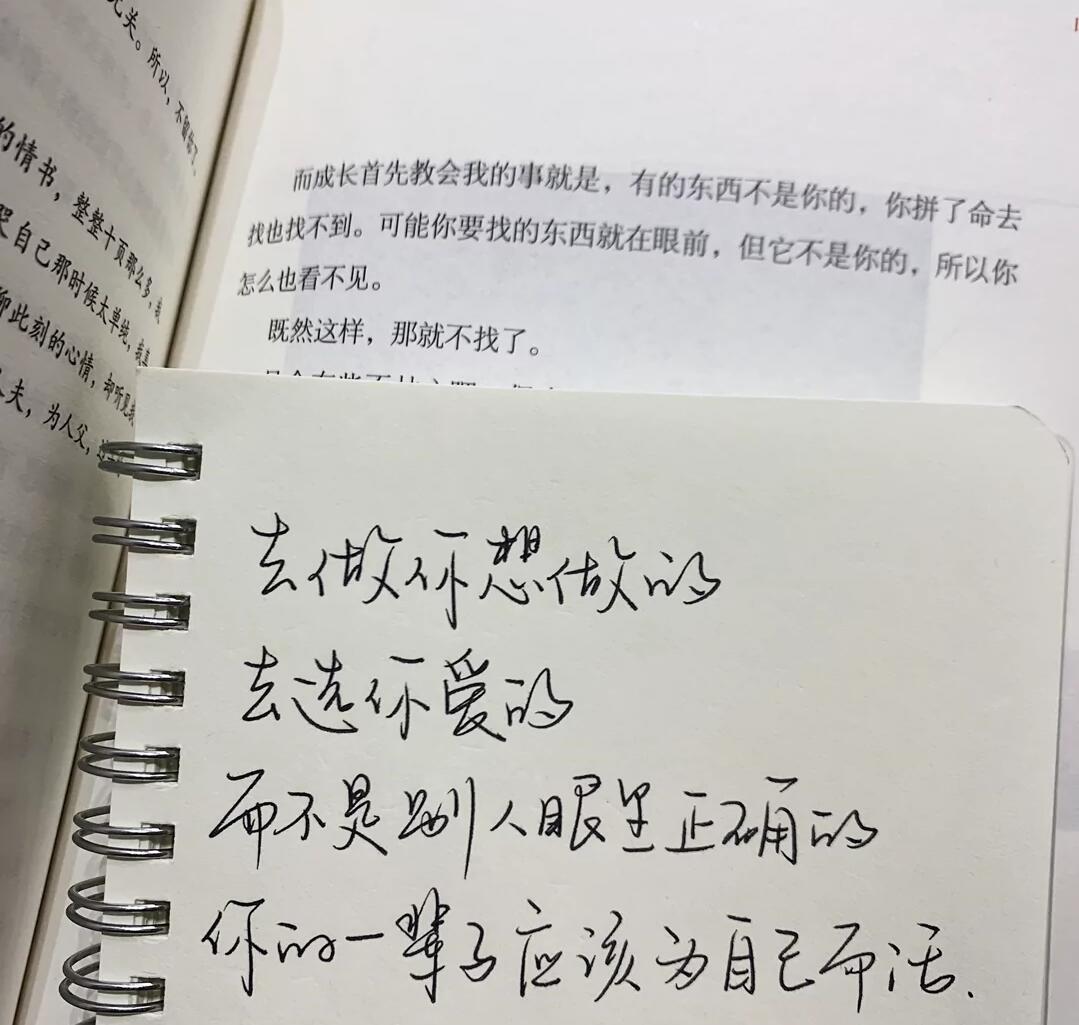 无关。所以，不留你了。
的情书，整整十页那么多，我
自己那时候太单纯，我真
聊此刻的心情，却听见我
夫，为人父，
而成长首先教会我的事就是，有的东西不是你的，你拼了命去
找也找不到。可能你要找的东西就在眼前，但它不是你的，所以你
怎么也看不见。
既然这样，那就不找了。
去做你想做的
去选你爱的
而不是别人眼里正确的
你的一辈子应该为自己而活.